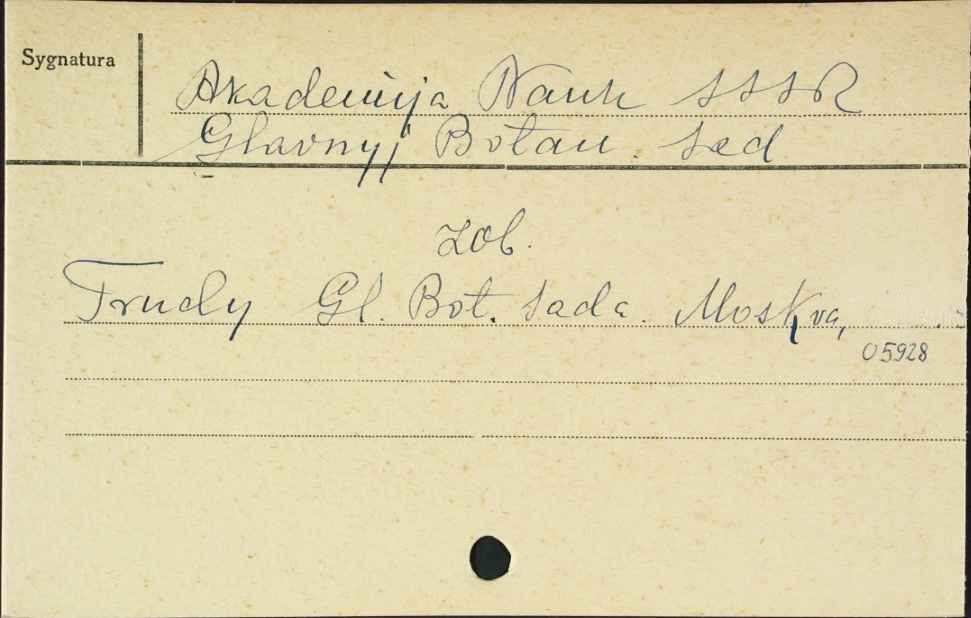 Sygnatura
Akademija Nauk SSSR
Glavnyj Botan. Sad
zob.
Trudy Gl. Bot. Sada. Moskva,
05928